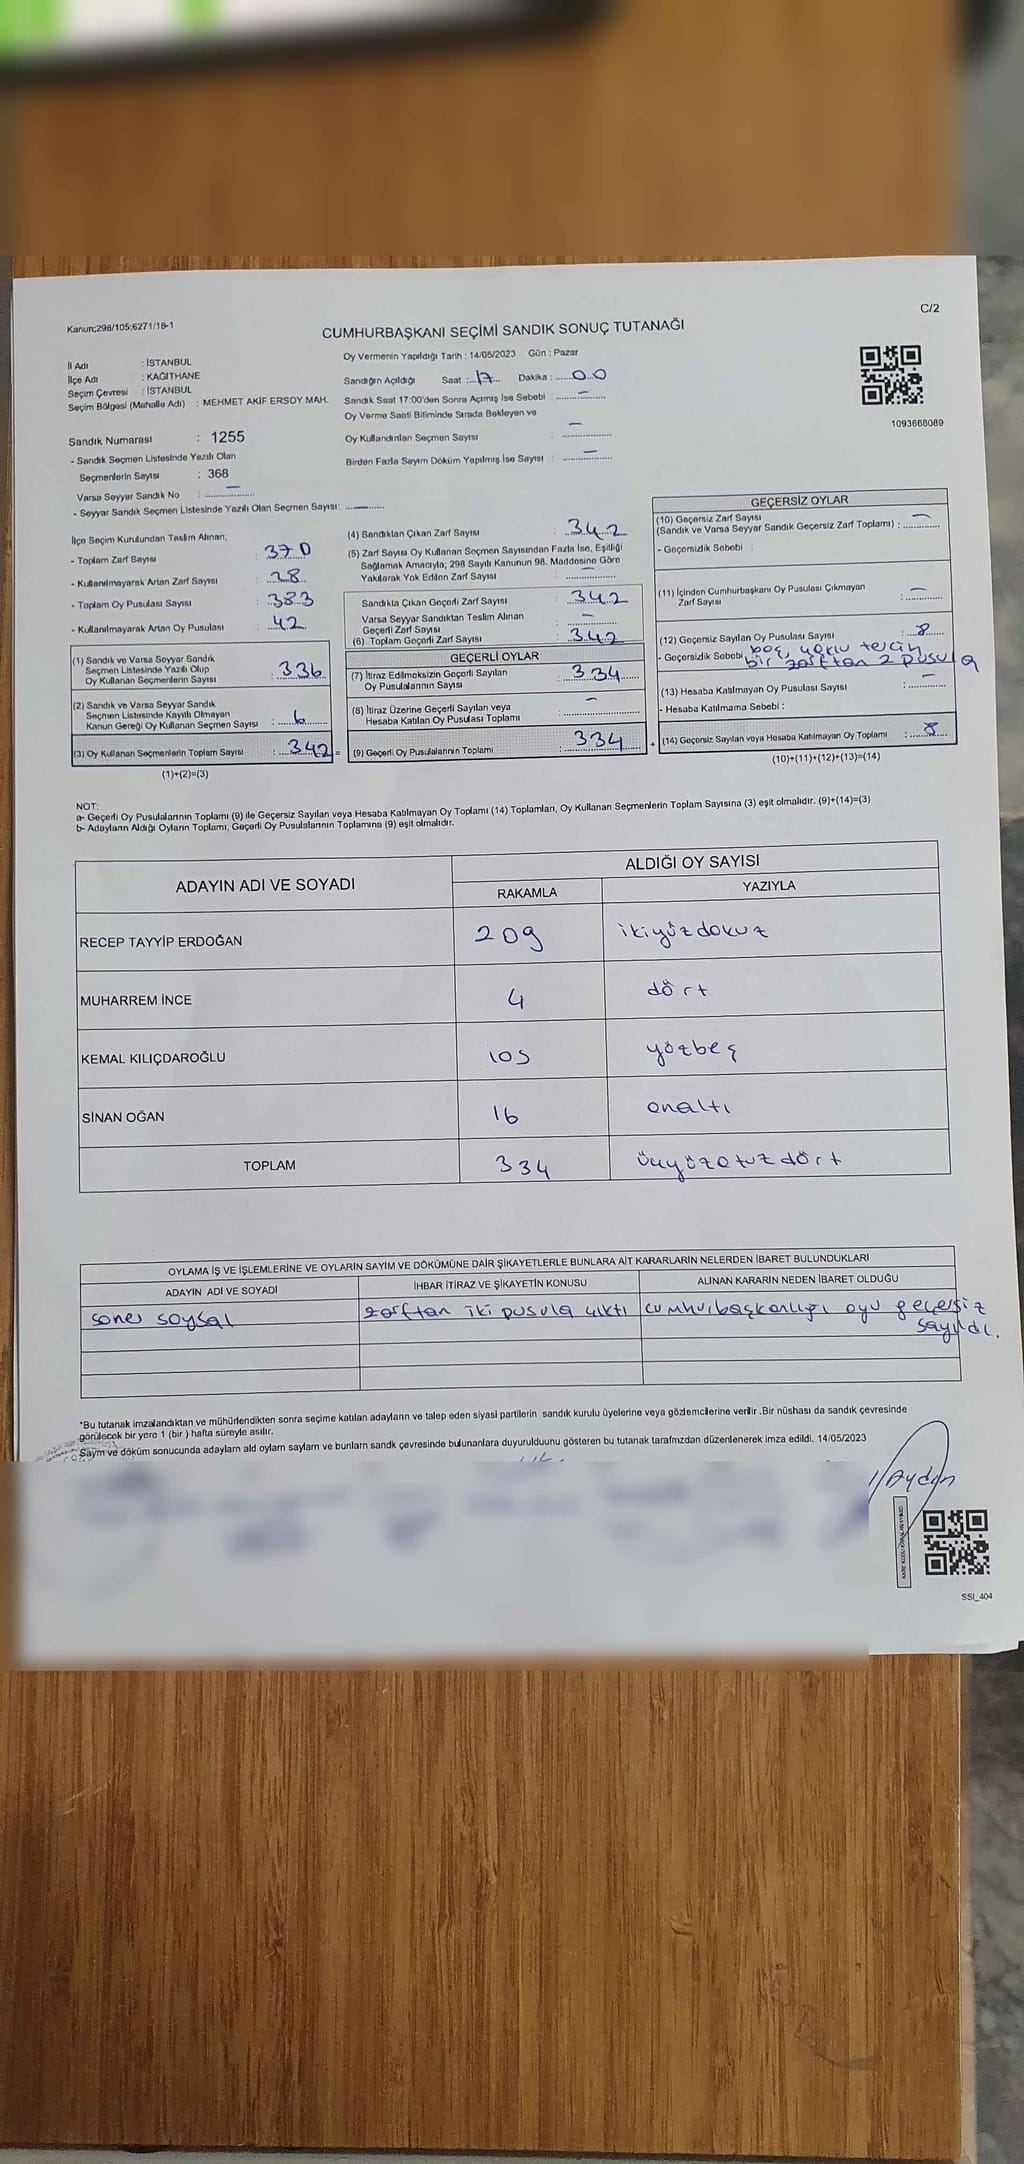 Kanun;298/105;6271/18-1
C/2
CUMHURBAŞKANI SEÇİMİ SANDIK SONUÇ TUTANAĞI
İl Adı : İSTANBUL
İlçe Adı : KAĞITHANE
Seçim Çevresi : İSTANBUL
Seçim Bölgesi (Mahalle Adı) : MEHMET AKİF ERSOY MAH.
Oy Vermenin Yapıldığı Tarih : 14/05/2023 Gün : Pazar
Sandığın Açıldığı Saat : 17 Dakika : 00
Sandık Saat 17:00'den Sonra Açımış İse Sebebi : —
Oy Verme Saati Bitiminde Sırada Bekleyen ve
Oy Kullandırılan Seçmen Sayısı : —
Birden Fazla Sayım Döküm Yapılmış İse Sayısı : —
1093668089
Sandık Numarası : 1255
- Sandık Seçmen Listesinde Yazılı Olan
Seçmenlerin Sayısı : 368
Varsa Seyyar Sandık No : —
- Seyyar Sandık Seçmen Listesinde Yazılı Olan Seçmen Sayısı: —
İlçe Seçim Kurulundan Teslim Alınan;
- Toplam Zarf Sayısı : 370
- Kullanılmayarak Artan Zarf Sayısı : 28
- Toplam Oy Pusulası Sayısı : 383
- Kullanılmayarak Artan Oy Pusulası : 42
(1) Sandık ve Varsa Seyyar Sandık
Seçmen Listesinde Yazılı Olup
Oy Kullanan Seçmenlerin Sayısı : 336
(2) Sandık ve Varsa Seyyar Sandık
Seçmen Listesinde Kayıtlı Olmayan
Kanun Gereği Oy Kullanan Seçmen Sayısı : 6
(3) Oy Kullanan Seçmenlerin Toplam Sayısı : 342 =
(1)+(2)=(3)
(4) Sandıktan Çıkan Zarf Sayısı : 342
(5) Zarf Sayısı Oy Kullanan Seçmen Sayısından Fazla İse, Eşitliği
Sağlamak Amacıyla; 298 Sayılı Kanunun 98. Maddesine Göre
Yakılarak Yok Edilen Zarf Sayısı : —
Sandıkta Çıkan Geçerli Zarf Sayısı : 342
Varsa Seyyar Sandıktan Teslim Alınan
Geçerli Zarf Sayısı : —
(6) Toplam Geçerli Zarf Sayısı : 342
GEÇERLİ OYLAR
(7) İtiraz Edilmeksizin Geçerli Sayılan
Oy Pusulalarının Sayısı : 334
(8) İtiraz Üzerine Geçerli Sayılan veya
Hesaba Katılan Oy Pusulası Toplamı : —
(9) Geçerli Oy Pusulalarının Toplamı : 334 +
GEÇERSİZ OYLAR
(10) Geçersiz Zarf Sayısı
(Sandık ve Varsa Seyyar Sandık Geçersiz Zarf Toplamı) : —
- Geçersizlik Sebebi :
(11) İçinden Cumhurbaşkanı Oy Pusulası Çıkmayan
Zarf Sayısı : —
(12) Geçersiz Sayılan Oy Pusulası Sayısı : 8
- Geçersizlik Sebebi boş, çoklu tercih
bir zarftan 2 pusula
(13) Hesaba Katılmayan Oy Pusulası Sayısı : —
- Hesaba Katılmama Sebebi :
(14) Geçersiz Sayılan veya Hesaba Katılmayan Oy Toplamı : 8
(10)+(11)+(12)+(13)=(14)
NOT:
a- Geçerli Oy Pusulalarının Toplamı (9) ile Geçersiz Sayılan veya Hesaba Katılmayan Oy Toplamı (14) Toplamları, Oy Kullanan Seçmenlerin Toplam Sayısına (3) eşit olmalıdır. (9)+(14)=(3)
b- Adayların Aldığı Oyların Toplamı, Geçerli Oy Pusulalarının Toplamına (9) eşit olmalıdır.
ADAYIN ADI VE SOYADI
ALDIĞI OY SAYISI
RAKAMLA YAZIYLA
RECEP TAYYİP ERDOĞAN 209 ikiyüzdokuz
MUHARREM İNCE 4 dört
KEMAL KILIÇDAROĞLU 105 yüzbeş
SİNAN OĞAN 16 onaltı
TOPLAM 334 üçyüzotuzdört
OYLAMA İŞ VE İŞLEMLERİNE VE OYLARIN SAYIM VE DÖKÜMÜNE DAİR ŞİKAYETLERLE BUNLARA AİT KARARLARIN NELERDEN İBARET BULUNDUKLARI
ADAYIN ADI VE SOYADI İHBAR İTİRAZ VE ŞİKAYETİN KONUSU ALINAN KARARIN NEDEN İBARET OLDUĞU
soner soysal zarftan iki pusula çıktı cumhurbaşkanlığı oyu geçersiz
sayıldı.
*Bu tutanak imzalandıktan ve mühürlendikten sonra seçime katılan adayların ve talep eden siyasi partilerin sandık kurulu üyelerine veya gözlemcilerine verilir .Bir nüshası da sandık çevresinde
görülecek bir yere 1 (bir ) hafta süreyle asılır.
Sayım ve döküm sonucunda adayların ald oyların saylarm ve bunların sandk çevresinde bulunanlara duyurulduunu gösteren bu tutanak tarafmzdan düzenlenerek imza edildi. 14/05/2023
SSI_404